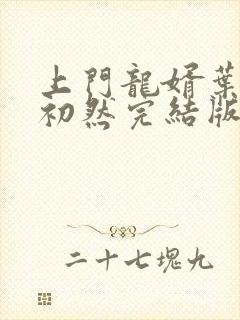 上門龍婿葉
初然完結版
二十七塊九